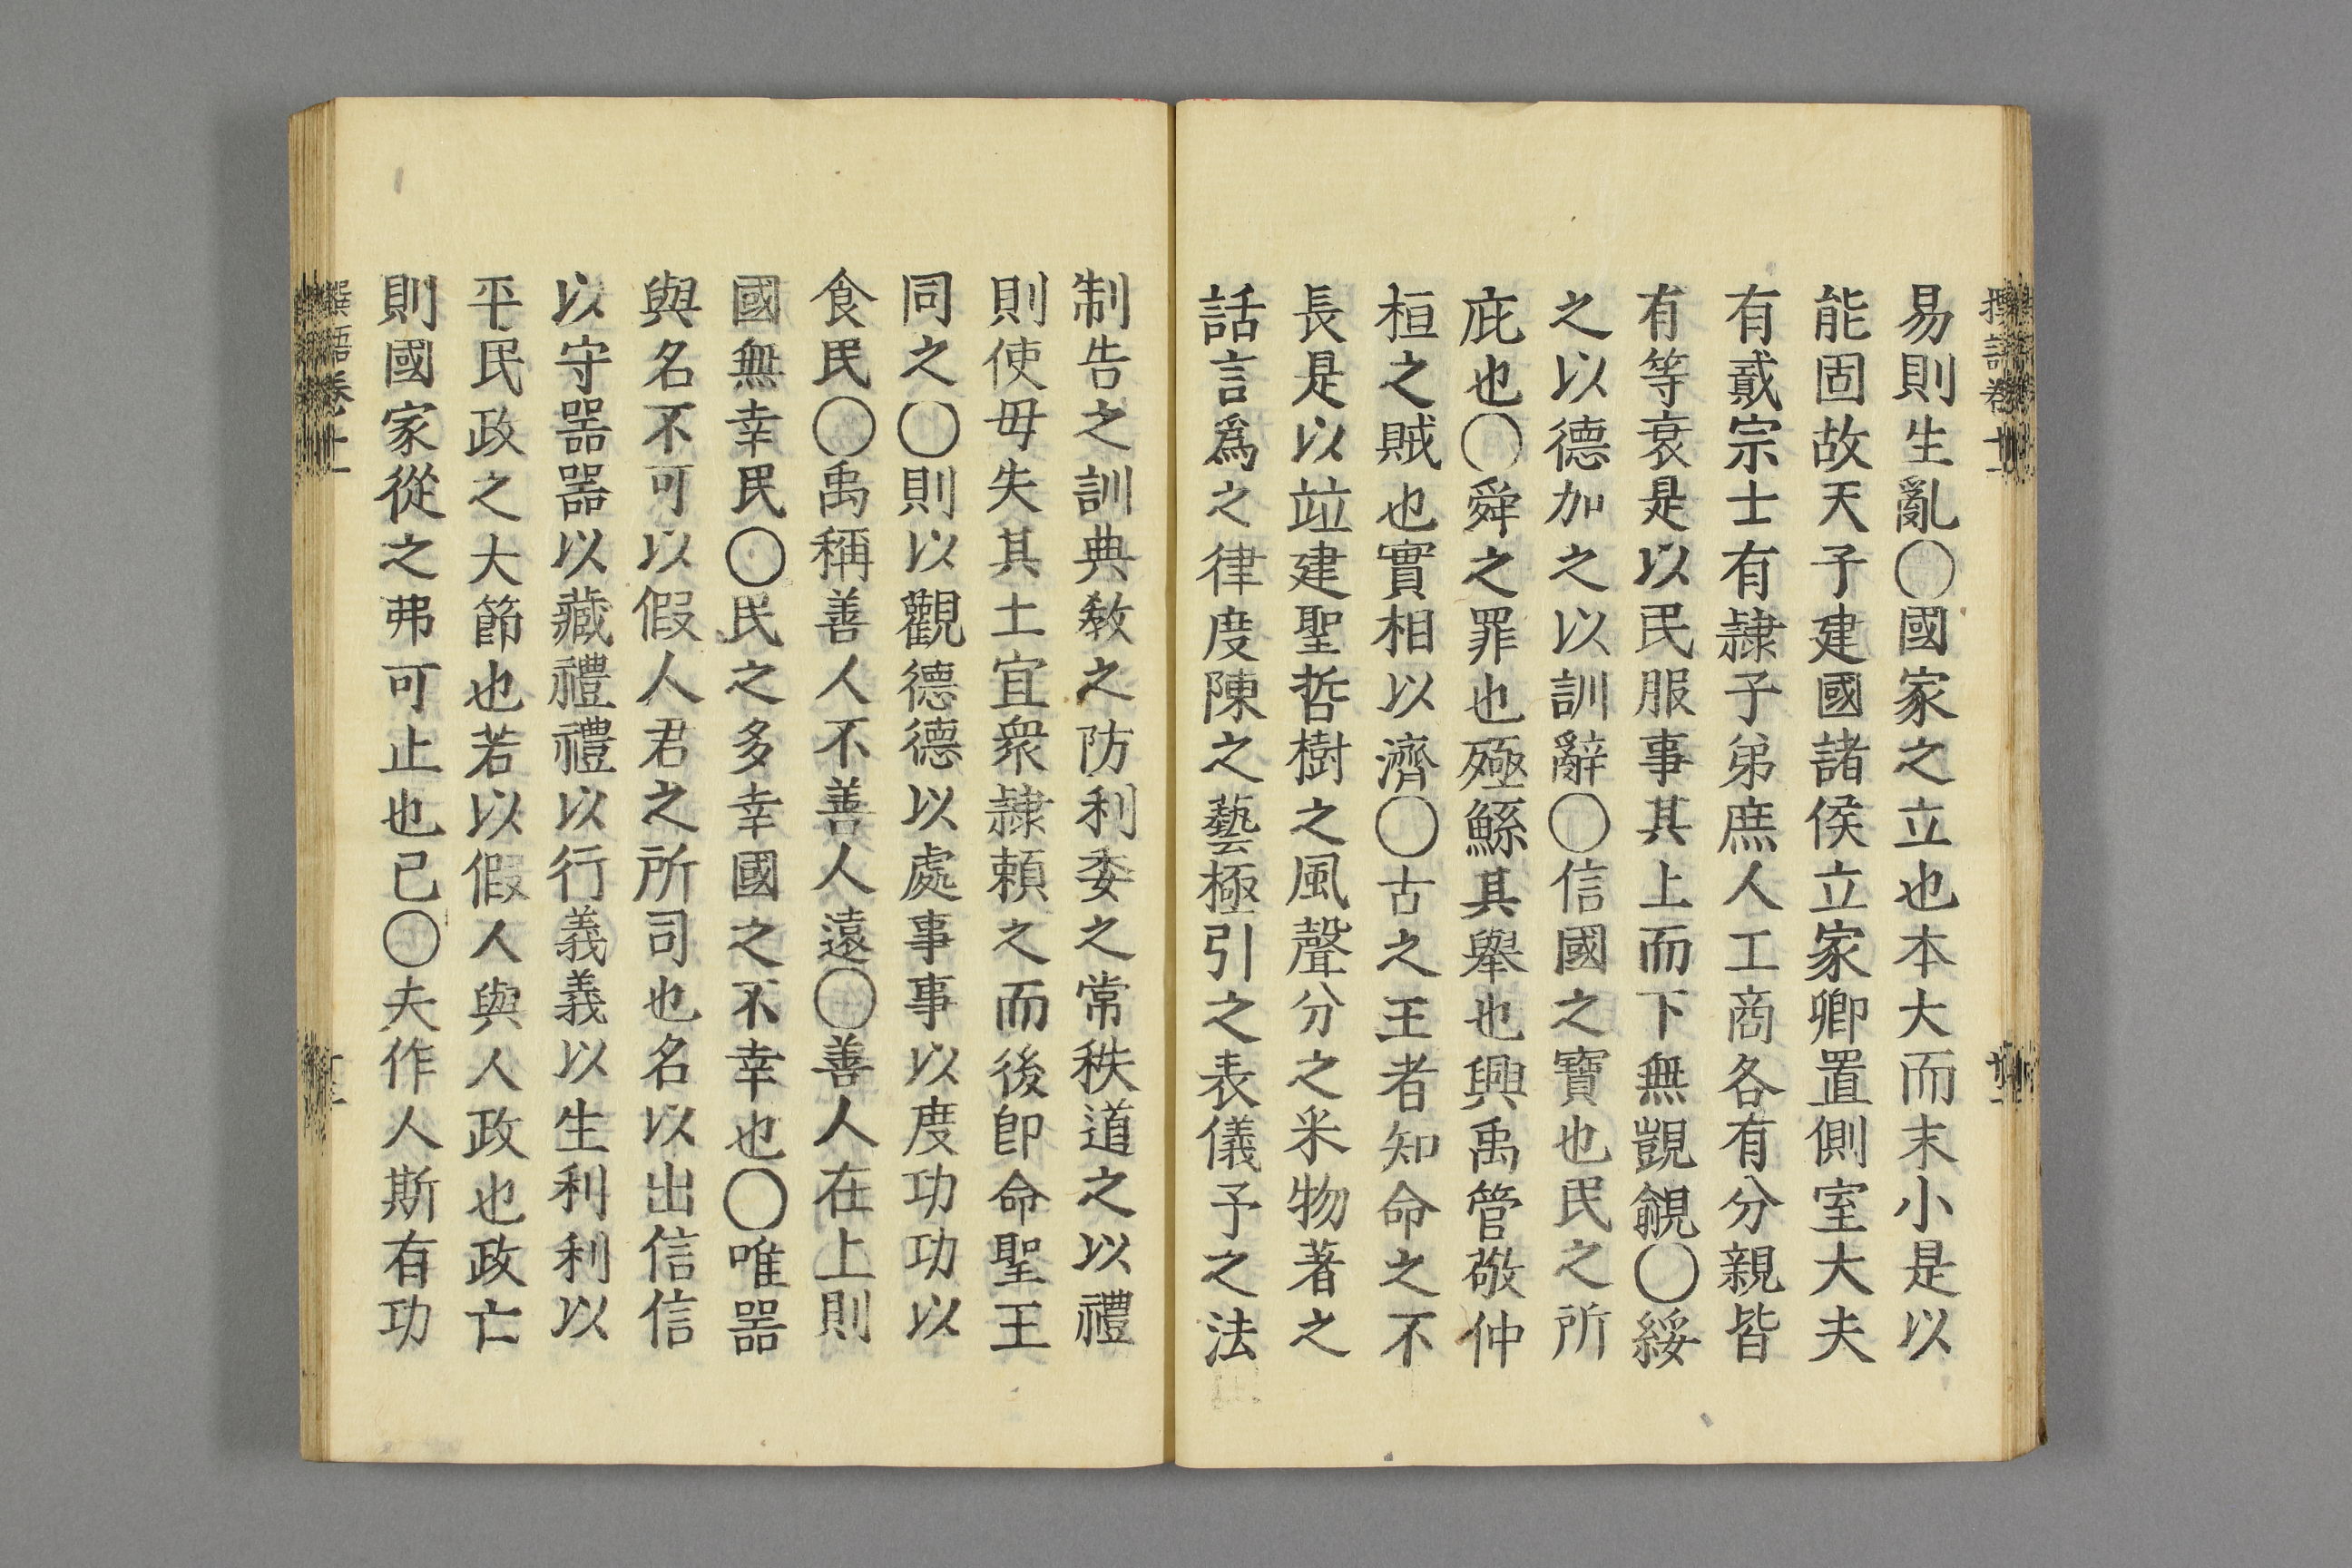 易則生亂〇國家之立也本大而末小是以
能固故天子建國諸侯立家卿置側室大夫
有貳宗士有隷子弟庶人工商各有分親皆
有等衰是以民服事其上而下無覬覦〇綏
之以德加之以訓辭〇信國之寶也民之所
庇也〇舜之罪也殛鯀其舉也興禹管敬仲
桓之賊也實相以濟〇古之王者知命之不
長是以竝建聖哲樹之風聲分之采物著之
話言爲之律度陳之藝極引之表儀予之法
制告之訓典敎之防利委之常秩道之以禮
則使毋失其土宜衆隷賴之而後卽命聖王
同之〇則以觀德德以處事事以度功功以
食民〇禹稱善人不善人遠〇善人在上則
國無幸民〇民之多幸國之不幸也〇唯噐
與名不可以假人君之所司也名以出信信
以守噐噐以藏禮禮以行義義以生利利以
平民政之大節也若以假人與人政也政亡
則國家從之弗可止也已〇夫作人斯有功